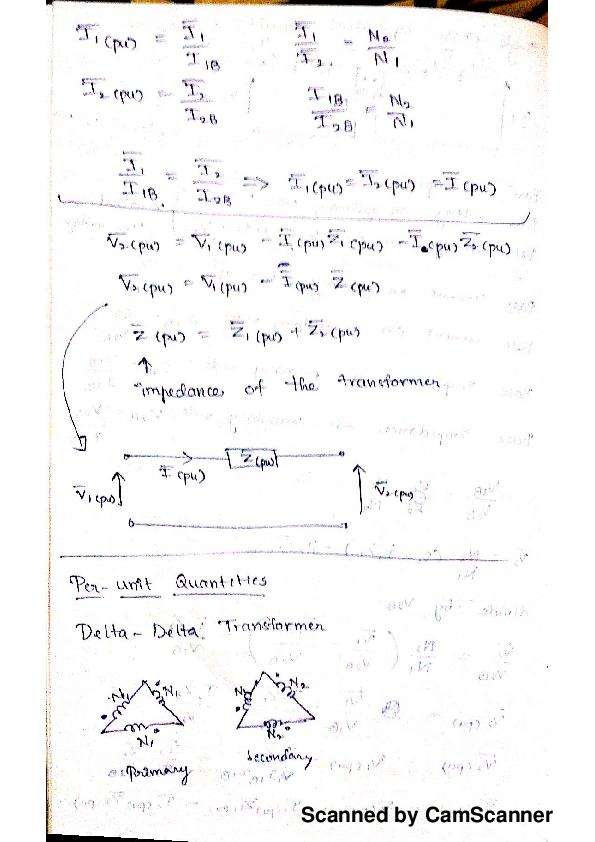 Ī₁(pu) = Ī₁/I₁B    Ī₁/Ī₂ = N₂/N₁
Ī₂(pu) = Ī₂/I₂B    I₁B/I₂B = N₂/N₁
Ī₁/I₁B = Ī₂/I₂B ⇒ Ī₁(pu) = Ī₂(pu) = Ī(pu)
V̄₂(pu) = V̄₁(pu) - Ī(pu) Z̄₁(pu) - Ī(pu) Z̄₂(pu)
V̄₂(pu) = V̄₁(pu) - Ī(pu) Z̄(pu)
Z̄(pu) = Z̄₁(pu) + Z̄₂(pu)
↑
impedance of the transformer
Z̄(pu)
Ī(pu)
V̄₁(pu)    V̄₂(pu)
Per-unit Quantities
Delta-Delta Transformer
N₁ N₁ N₂ N₂
N₁ N₂
primary secondary
Scanned by CamScanner